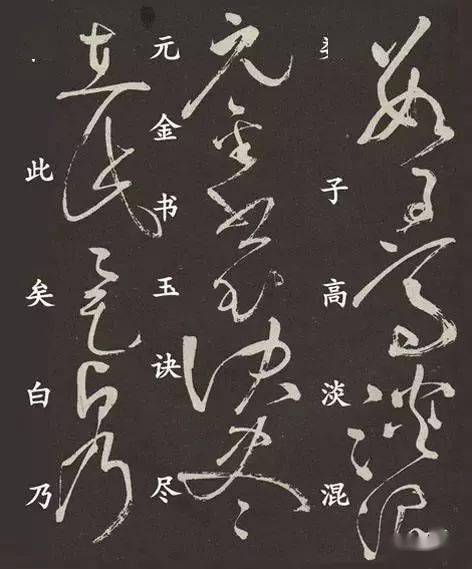 子高淡混
元金书玉诀尽
在此矣白乃